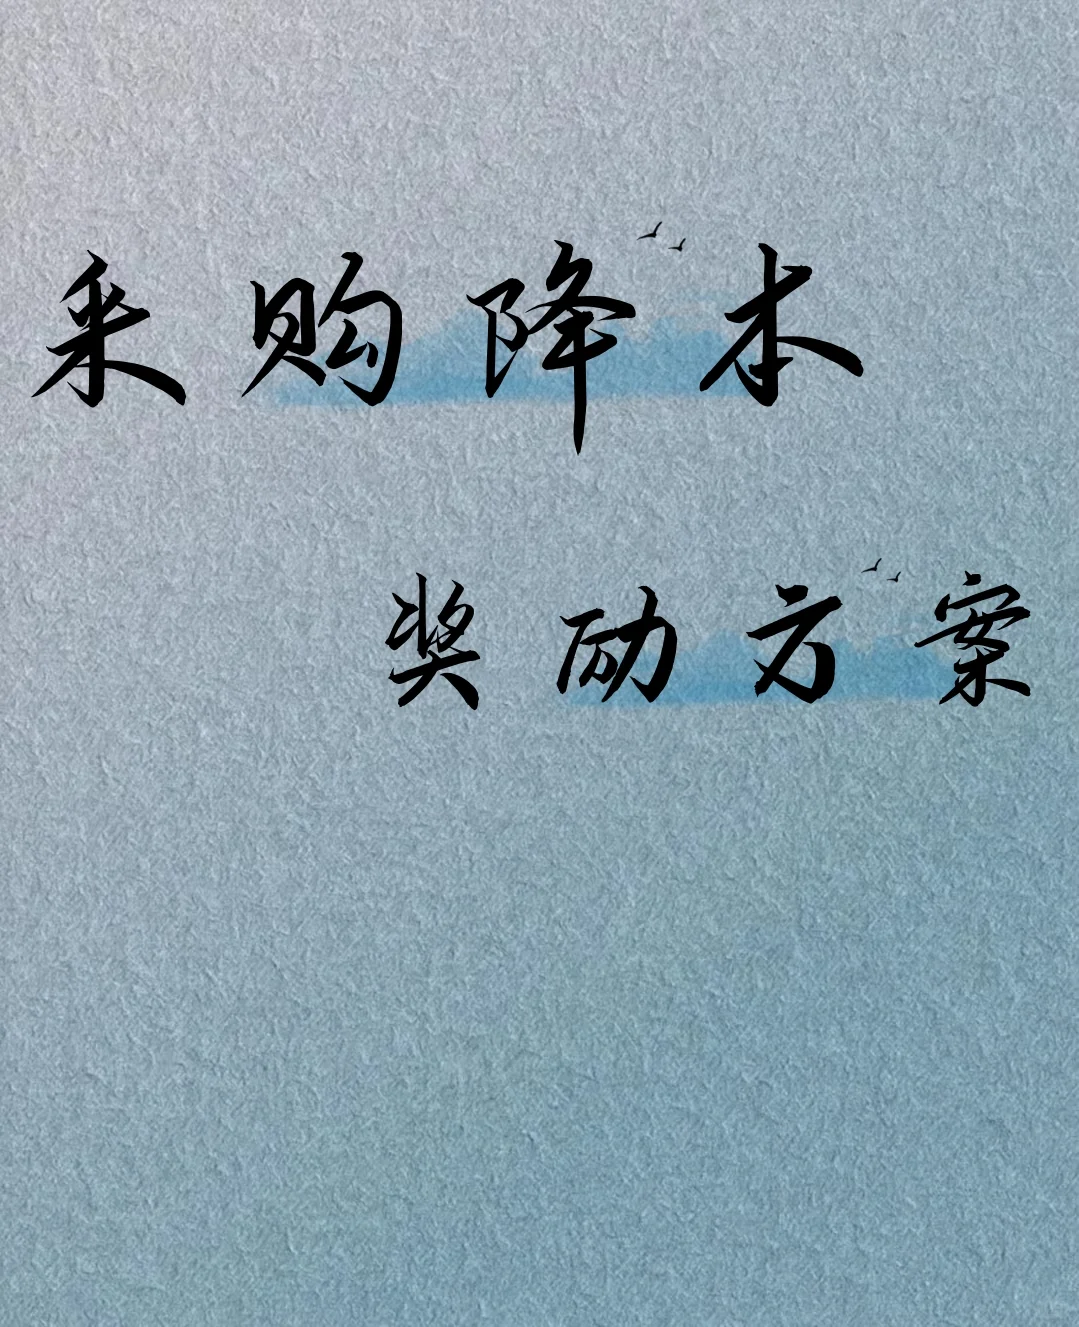 采购降本
奖励方案